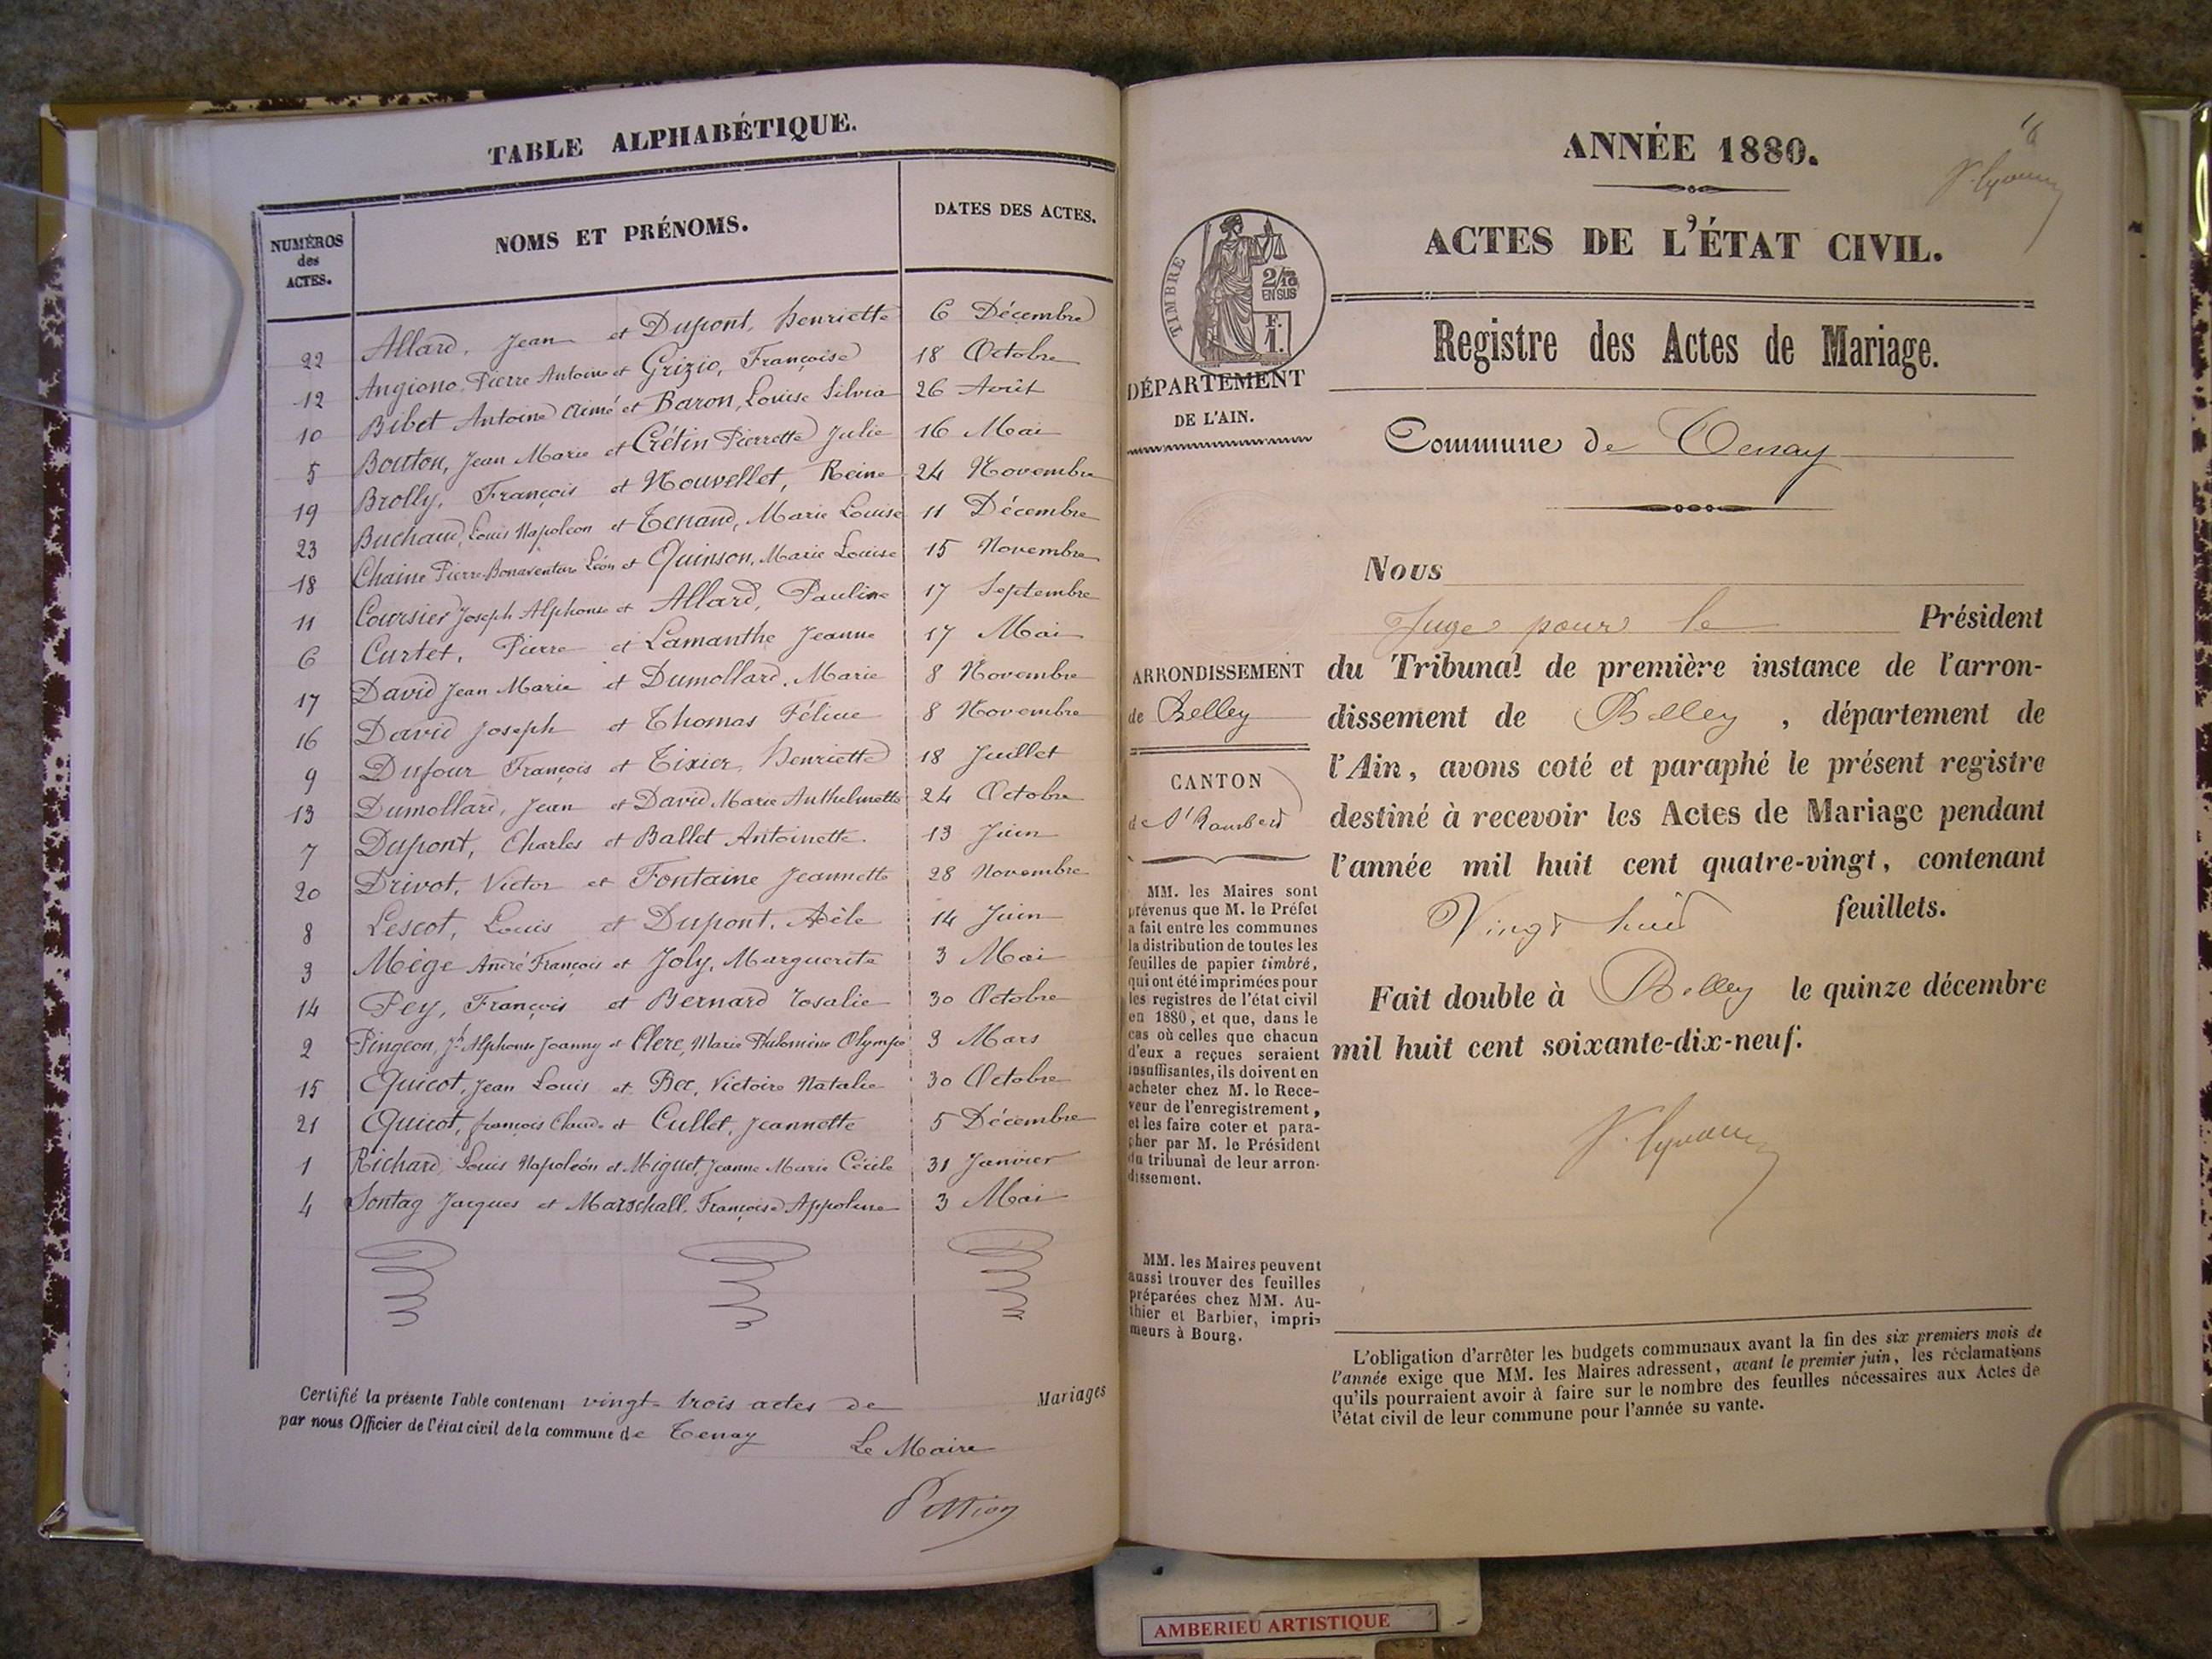 TABLE ALPHABÉTIQUE.
NUMÉROS des ACTES.
NOMS ET PRÉNOMS.
DATES DES ACTES.
22 Allard, Jean et Dupont, Henriette 6 Décembre
12 Angiono Pierre Antoine et Grizio, Françoise 18 Octobre
10 Bibet Antoine Aimé et Baron, Louise Silvia 26 Août
5 Bouton, Jean Marie et Crétin Pierrette Julie 16 Mai
19 Brolly, François et Nouvellet, Reine 24 Novembre
23 Buchaud, Louis Napoléon et Tenand, Marie Louise 11 Décembre
18 Chaine Pierre Bonaventure Léon et Quinson, Marie Louise 15 Novembre
11 Coursier Joseph Alphonse et Allard, Pauline 17 Septembre
6 Curtet, Pierre et Lamanthe Jeanne 17 Mai
17 David Jean Marie et Dumollard, Marie 8 Novembre
16 David Joseph et Thomas Félicie 8 Novembre
9 Dufour François et Tixier, Henriette 18 Juillet
13 Dumollard, Jean et David Marie Anthelmette 24 Octobre
7 Dupont, Charles et Ballet Antoinette. 13 Juin
20 Drivot, Victor et Fontaine Jeannette 28 Novembre
8 Lescot, Louis et Dupont, Adèle 14 Juin
3 Mège André François et Joly, Marguerite 3 Mai
14 Pey, François et Bernard Rosalie 30 Octobre
2 Pingeon, Jh Alphonse Joanny et Clerc, Marie Philomène Olympe 3 Mars
15 Quicot, Jean Louis et Bec, Victoire Natalie 30 Octobre
21 Quicot, françois Claude et Cullet, Jeannette 5 Décembre
1 Richard, Louis Napoléon et Miguet, Jeanne Marie Cécile 31 Janvier
4 Sontag Jacques et Marschall, Françoise Appoline 3 Mai
Certifié la présente Table contenant vingt-trois actes de Mariages
par nous Officier de l'état civil de la commune de Tenay
Le Maire
ANNÉE 1880.
ACTES DE L'ÉTAT CIVIL.
TIMBRE
2/10
EN SUS
F.
1.
Registre des Actes de Mariage.
DÉPARTEMENT
DE L'AIN.
Commune de Tenay
Nous
Juge pour le Président
du Tribunal de première instance de l'arron-
dissement de Belley, département de
l'Ain, avons coté et paraphé le présent registre
destiné à recevoir les Actes de Mariage pendant
l'année mil huit cent quatre-vingt, contenant
Vingt huit feuillets.
Fait double à Belley le quinze décembre
mil huit cent soixante-dix-neuf.
ARRONDISSEMENT
de Belley
CANTON
de St Rambert
MM. les Maires sont
prévenus que M. le Préfet
a fait entre les communes
la distribution de toutes les
feuilles de papier timbré,
qui ont été imprimées pour
les registres de l'état civil
en 1880, et que, dans le
cas où celles que chacun
d'eux a reçues seraient
insuffisantes, ils doivent en
acheter chez M. le Rece-
veur de l'enregistrement,
et les faire coter et para-
pher par M. le Président
du tribunal de leur arron-
dissement.
MM. les Maires peuvent
aussi trouver des feuilles
préparées chez MM. Au-
thier et Barbier, impri-
meurs à Bourg.
L'obligation d'arrêter les budgets communaux avant la fin des six premiers mois de
l'année exige que MM. les Maires adressent, avant le premier juin, les réclamations
qu'ils pourraient avoir à faire sur le nombre des feuilles nécessaires aux Actes de
l'état civil de leur commune pour l'année su vante.
AMBERIEU ARTISTIQUE